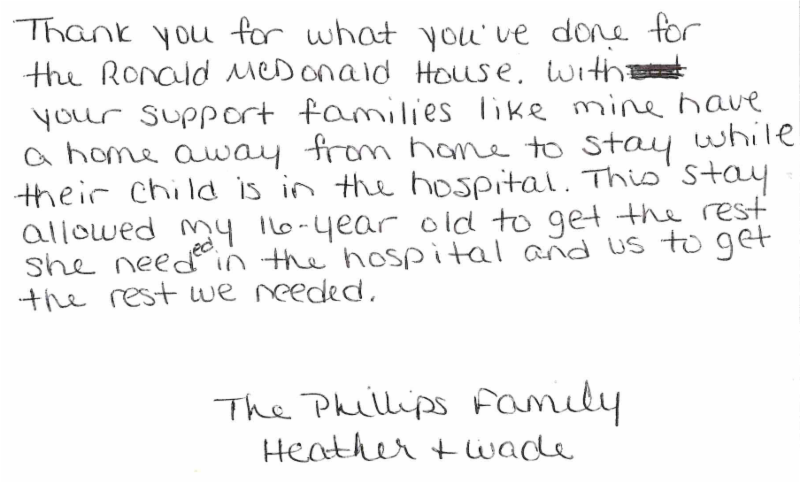 Thank you for what you've done for
the Ronald McDonald House. With
your support families like mine have
a home away from home to stay while
their child is in the hospital. This stay
allowed my 16-year old to get the rest
she needed in the hospital and us to get
the rest we needed.
The Phillips Family
Heather + Wade